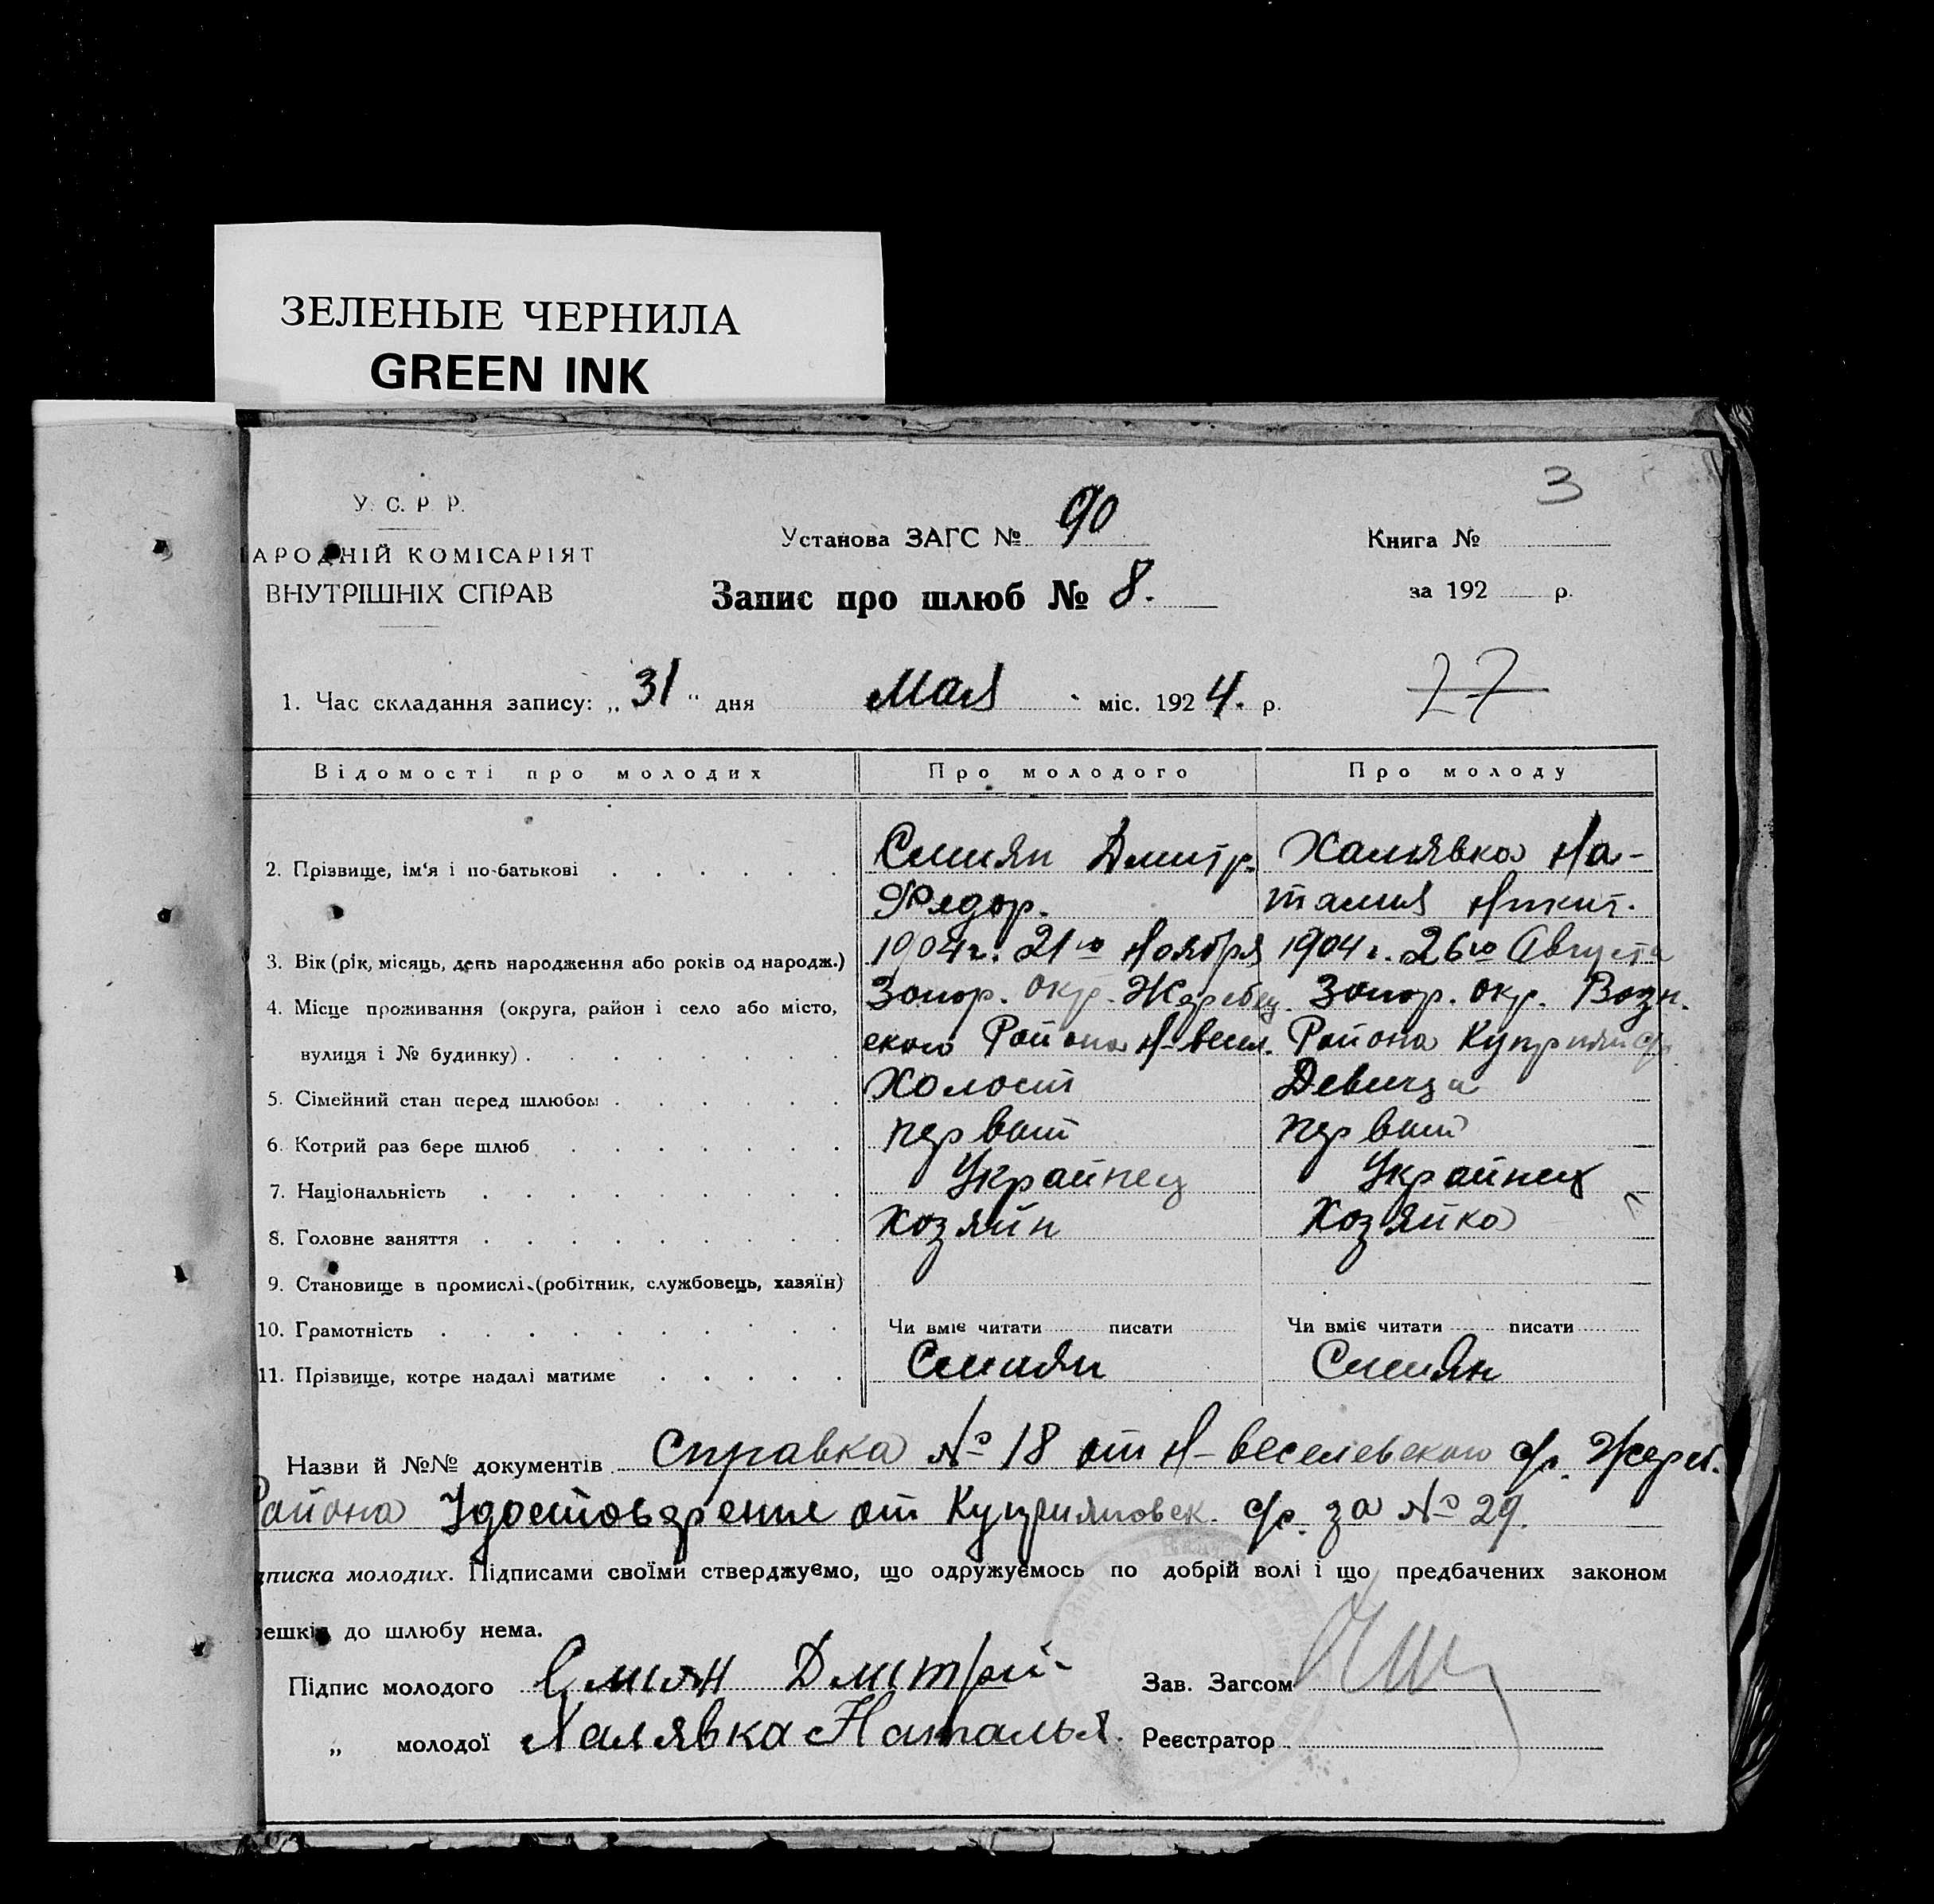 ЗЕЛЕНЫЕ ЧЕРНИЛА
GREEN INK
3
У. С. Р. Р.
АРОДНІЙ КОМІСАРІЯТ
ВНУТРІШНІХ СПРАВ
Установа ЗАГС № 90
Книга №
Запис про шлюб № 8.
за 192 р.
27
1. Час складання запису: „ 31 “ дня Мая міс. 1924. р.
Відомості про молодих Про молодого Про молоду
2. Прізвище, ім‘я і по-батькові Смиян Дмитр. Халявка На-
Федор. талия Никит.
3. Вік (рік, місяць, день народження або років од народж.) 1904 г. 21го Ноября 1904 г. 26го Августа
4. Місце проживання (округа, район і село або місто, Запор. Окр. Жеребец Запор. окр. Возн.
вулиця і № будинку) ского Района Н-весел. Района Куприян с/р.
5. Сімейний стан перед шлюбом Холост Девица
6. Котрий раз бере шлюб первый первый
7. Національність Украйнец Украйнец
8. Головне заняття Хозяйн Хозяйка
9. Становище в промислі (робітник, службовець, хазяїн)
10. Грамотність Чи вміє читати писати Чи вміє читати писати
11. Прізвище, котре надалі матиме Смиян Смиян
Назви й №№ документів Справка № 18 от Н-веселевского с/р. Жереб.
Района Удостоверение от Куприяновск. с/р. за № 29.
дписка молодих. Підписами своїми стверджуємо, що одружуємось по добрій волі і що предбачених законом
решкід до шлюбу нема.
Підпис молодого Смиян Дмитрий Зав. Загсом
„ молодої Халявка Наталья. Реєстратор